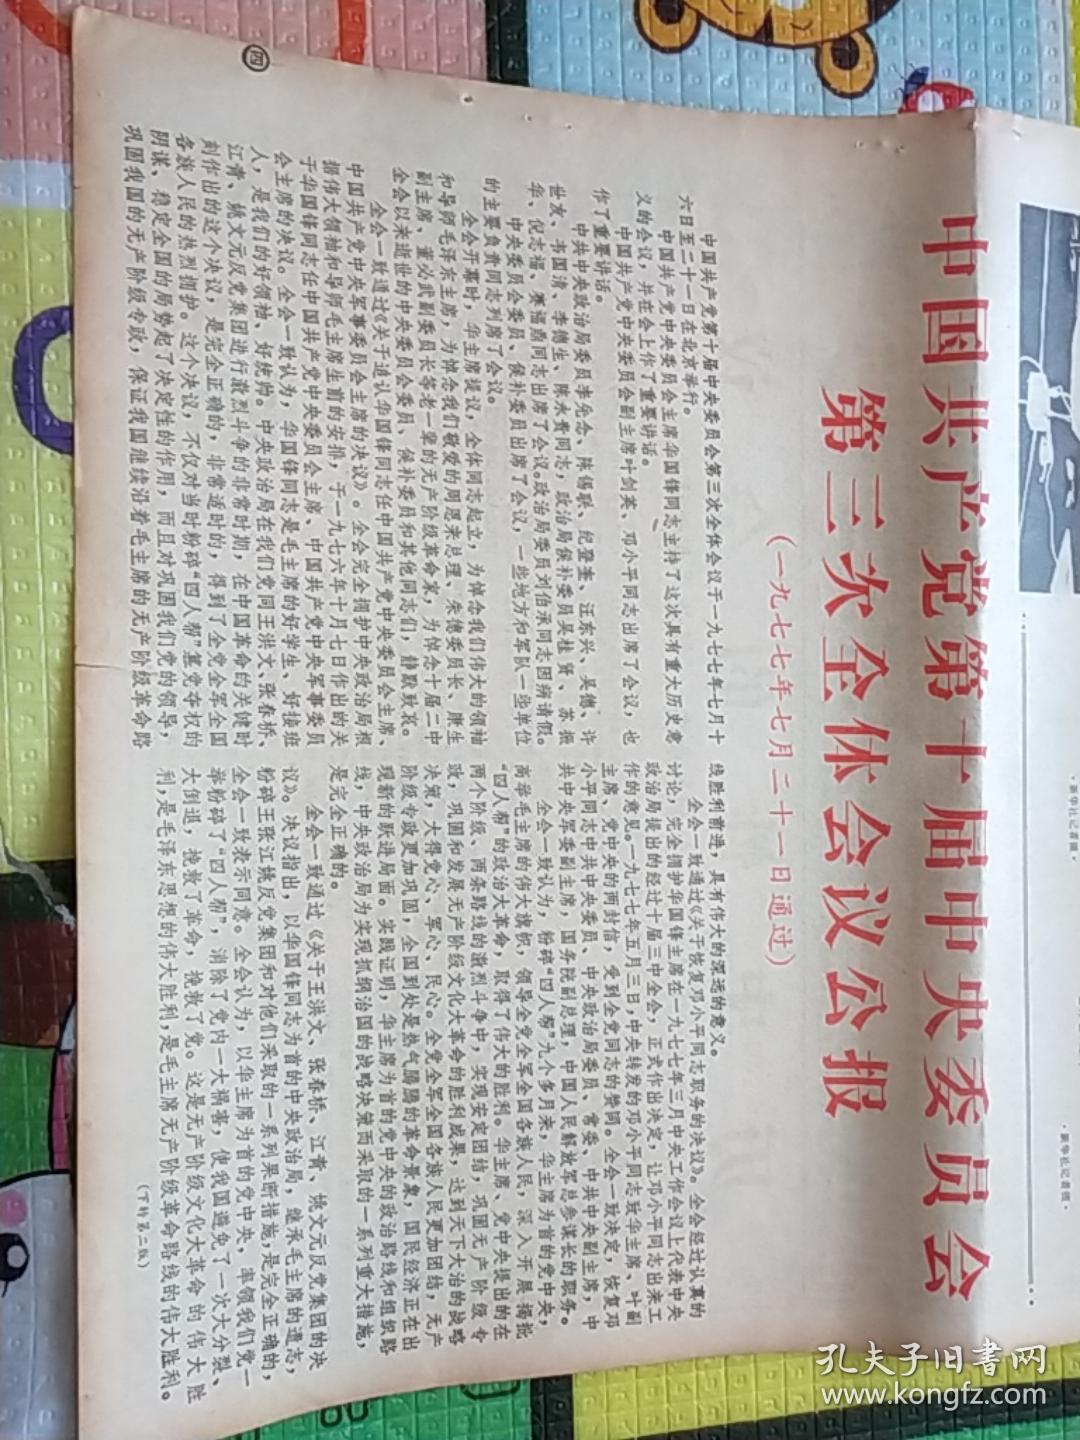 中国共产党第十届中央委员会
第三次全体会议公报
(一九七七年七月二十一日通过)
中国共产党第十届中央委员会第三次全体会议于一九七七年七月十
六日至二十一日在北京举行。
中国共产党中央委员会主席华国锋同志主持了这次具有重大历史意
义的会议,并在会上作了重要讲话。
中国共产党中央委员会副主席叶剑英、邓小平同志出席了会议,也
作了重要讲话。
中共中央政治局委员李先念、陈锡联、纪登奎、汪东兴、吴德、许
世友、韦国清、李德生、陈永贵同志,政治局候补委员吴桂贤、苏振
华、倪志福、赛福鼎同志出席了会议。政治局委员刘伯承同志因病请假。
中央委员会委员、候补委员出席了会议,一些地方和军队一些单位
的主要负责同志列席了会议。
全会开幕时,华主席提议,全体同志起立,为悼念我们伟大的领袖
和导师毛泽东主席,为悼念我们敬爱的周恩来总理、朱德委员长、康生
副主席、董必武副委员长等老一辈的无产阶级革命家,为悼念十届二中
全会以来逝世的中央委员会委员、候补委员和其他同志们,静默致哀。
全会一致通过《关于追认华国锋同志任中国共产党中央委员会主席、
中国共产党中央军事委员会主席的决议》。全会完全拥护中央政治局根
据伟大领袖和导师毛主席生前的安排,于一九七六年十月七日作出的关
于华国锋同志任中国共产党中央委员会主席、中国共产党中央军事委员
会主席的决议。全会一致认为,华国锋同志是毛主席的好学生、好接班
人,是我们的好领袖、好统帅。中央政治局在我们党同王洪文、张春桥、
江青、姚文元反党集团进行激烈斗争的非常时期,在中国革命的关键时
刻作出的这个决议,是完全正确的,非常适时的,得到了全党全军全国
各族人民的热烈拥护。这个决议,不仅对当时粉碎“四人帮”篡党夺权的
阴谋、稳定全国的局势起了决定性的作用,而且对巩固我们党的领导,
巩固我国的无产阶级专政,保证我国继续沿着毛主席的无产阶级革命路
线胜利前进,具有伟大的深远的意义。
全会一致通过《关于恢复邓小平同志职务的决议》。全会经过认真的
讨论,完全拥护华国锋主席在一九七七年三月中央工作会议上代表中央
政治局提出的经过十届三中全会,正式作出决定,让邓小平同志出来工
作的意见。一九七七年五月三日,中央转发的邓小平同志致华主席、叶副
主席、党中央的两封信,受到全党同志的赞同。全会一致决定,恢复邓
小平同志中共中央委员,中央政治局委员、常委,中共中央副主席,中
共中央军委副主席,国务院副总理,中国人民解放军总参谋长的职务。
全会一致认为,粉碎“四人帮”九个多月来,华主席为首的党中央,
高举毛主席的伟大旗帜,领导全党全军全国各族人民,深入开展揭批
“四人帮”的政治大革命,取得了伟大的胜利。华主席、党中央提出的在
两个阶级、两条路线的激烈斗争中,实现安定团结,巩固无产阶级专
政,巩固和发展无产阶级文化大革命的胜利成果,达到天下大治的战略
决策,大得党心、军心、民心。全党全军全国各族人民更加团结,无产
阶级专政更加巩固,全国到处是热气腾腾的革命景象,国民经济正在出
现新的跃进局面。实践证明,华主席为首的党中央的政治路线和组织路
线,中央政治局为实现抓纲治国的战略决策而采取的一系列重大措施,
是完全正确的。
全会一致通过《关于王洪文、张春桥、江青、姚文元反党集团的决
议》。决议指出,以华国锋同志为首的中央政治局,继承毛主席的遗志,
粉碎王张江姚反党集团和对他们采取的一系列果断措施,是完全正确的,
全会一致表示同意。全会认为,以华主席为首的党中央,率领我们党一
举粉碎了“四人帮”,消除了党内一大祸害,使我国避免了一次大分裂、
大倒退,挽救了革命,挽救了党。这是无产阶级文化大革命的伟大胜
利,是毛泽东思想的伟大胜利,是毛主席无产阶级革命路线的伟大胜利。
(下转第二版)
四
·新华社记者摄·
·新华社记者摄·
孔夫子旧书网
www.kongfz.com